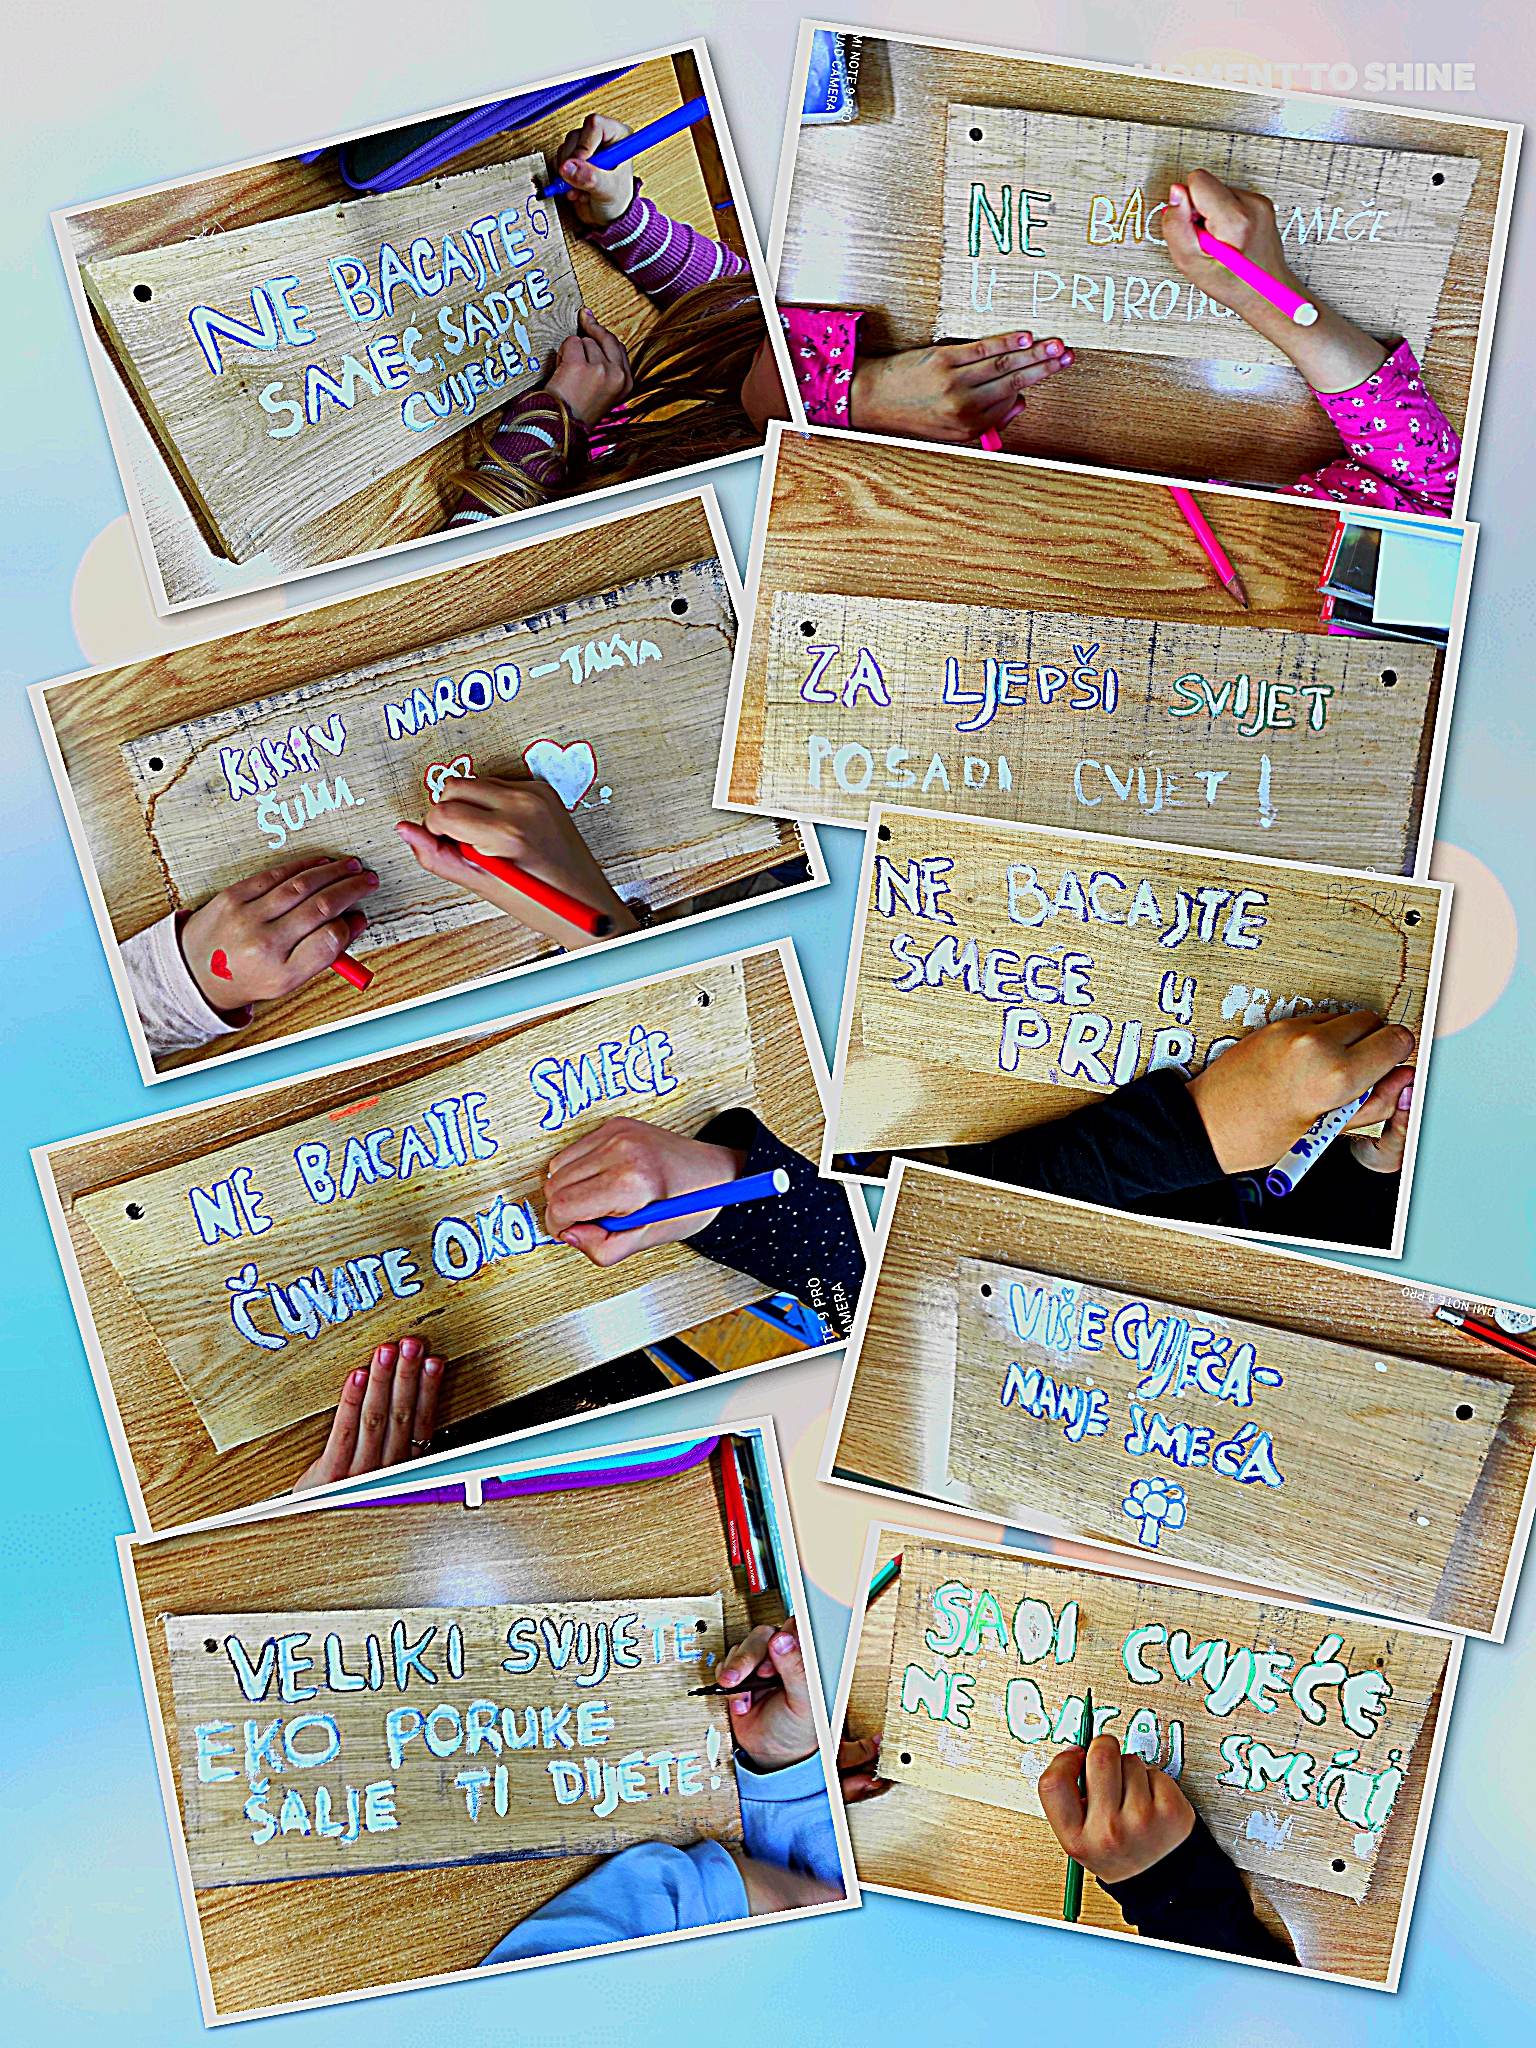 MOMENT TO SHINE
NE BACAJTE
SMEĆ, SADTE
CVIJEĆE!
MI NOTE 9 PRO
UAD CAMERA
NE BAC SMEČE
U PRIRODU
KAKAV NAROD - TAKVA
ŠUMA.
ZA LJEPŠI SVIJET
POSADI CVIJET!
NE BACAJTE
SMEĆE U
PRIRO
NE BACAJTE SMEĆE
ČUVAJTE OKOL
TE 9 PRO
AMERA
VIŠE CVIJEĆA-
MANJE SMEĆA
DMI NOTE 9 PRO
VELIKI SVIJETE,
EKO PORUKE
ŠALJE TI DIJETE!
SADI CVIJEĆE
NE BACAJ